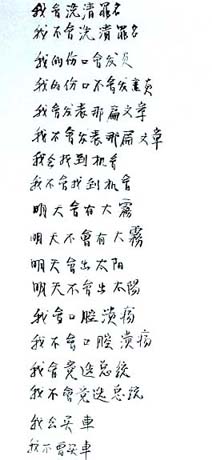 我會洗清罪名
我不會洗清罪名
我的份口會发炎
我的份口不會发炎
我會发表那扁文章
我不會发表那扁文章
我会找到机會
我不會找到机會
明天會有大霧
明天不會有大霧
明天會出太阳
明天不會出太陽
我會口腔溃疡
我不會口腔溃疡
我會竞选总统
我不會竞选总统
我会买車
我不會买車